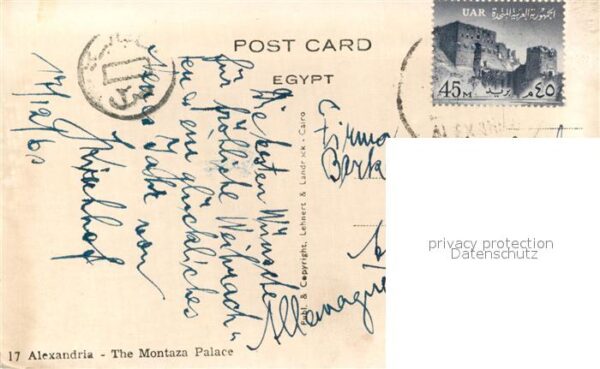 POST CARD
EGYPT
UAR
الجمهورية العربية المتحدة
45 M
بريد
م ٤٥
23
ALEX
Die besten Wünsche
für fröhliche Weihnach=
ten u. ein glückliches
neues Jahr von
Kirchhof
17/12/60
Firma
Berk
Allemagne
Publ. & Copyright, Lehnert & Landrock - Cairo
17 Alexandria - The Montaza Palace
privacy protection
Datenschutz